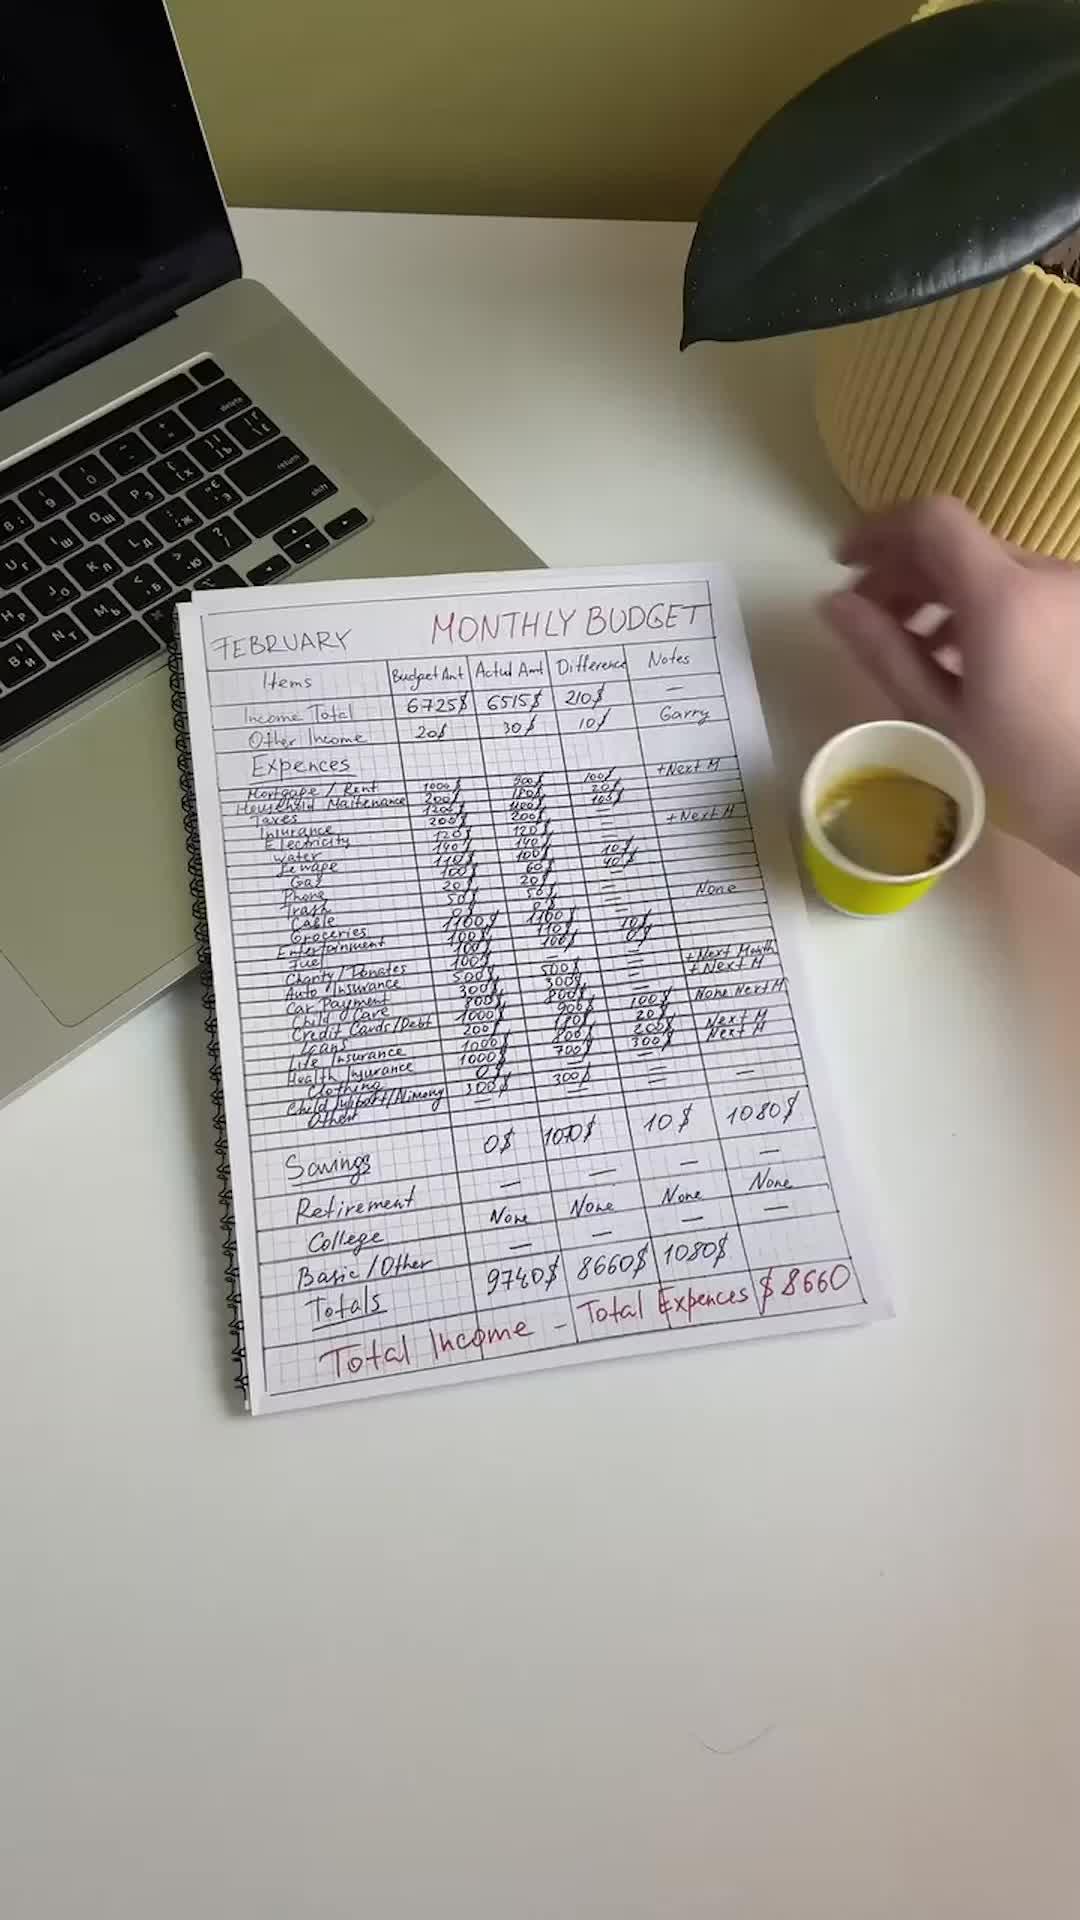 FEBRUARY MONTHLY BUDGET
Items Budget Amt Actual Amt Difference Notes
Income Total 6725$ 6515$ 210$ —
Other Income 20$ 30$ 10$ Garry
Expences
Mortgage / Rent 1000$ 900$ 100$ +Next M
Household Maitenance 200$ 180$ 20$
Taxes 1200$ 1100$ 100$
Insurance 200$ 200$ —
Electricity 120$ 120$ — +Next M
water 140$ 140$ —
Sewape 110$ 100$ 10$
Gas 100$ 60$ 40$
Phone 20$ 20$ —
Trash 50$ 50$ —
Cable None
Groceries 1100$ 1100$ —
Entertainment 100$ 110$ 10$
Fuel 100$ 100$ 0$
Charity/Donates 100$ —
Auto Insurance 500$ 500$ — +Next Month
Car Payment 300$ 300$ — +Next M
Child Care 800$ 800$ —
Credit Cards/Debt 1000$ 900$ 100$ None Next M
Loans 200$ 180$ 20$
Life Insurance 1000$ 800$ 200$ Next M
Health Insurance 1000$ 700$ 300$ Next M
Clothing 0$ —
Child Support/Alimony 300$ 300$ —
Other — — — —
Savings 0$ 1070$ 10$ 1080$
Retirement — — — —
College None None None None
Basic / Other — — — —
Totals 9740$ 8660$ 1080$
Total Income – Total Expences $8660
delete
return
shift